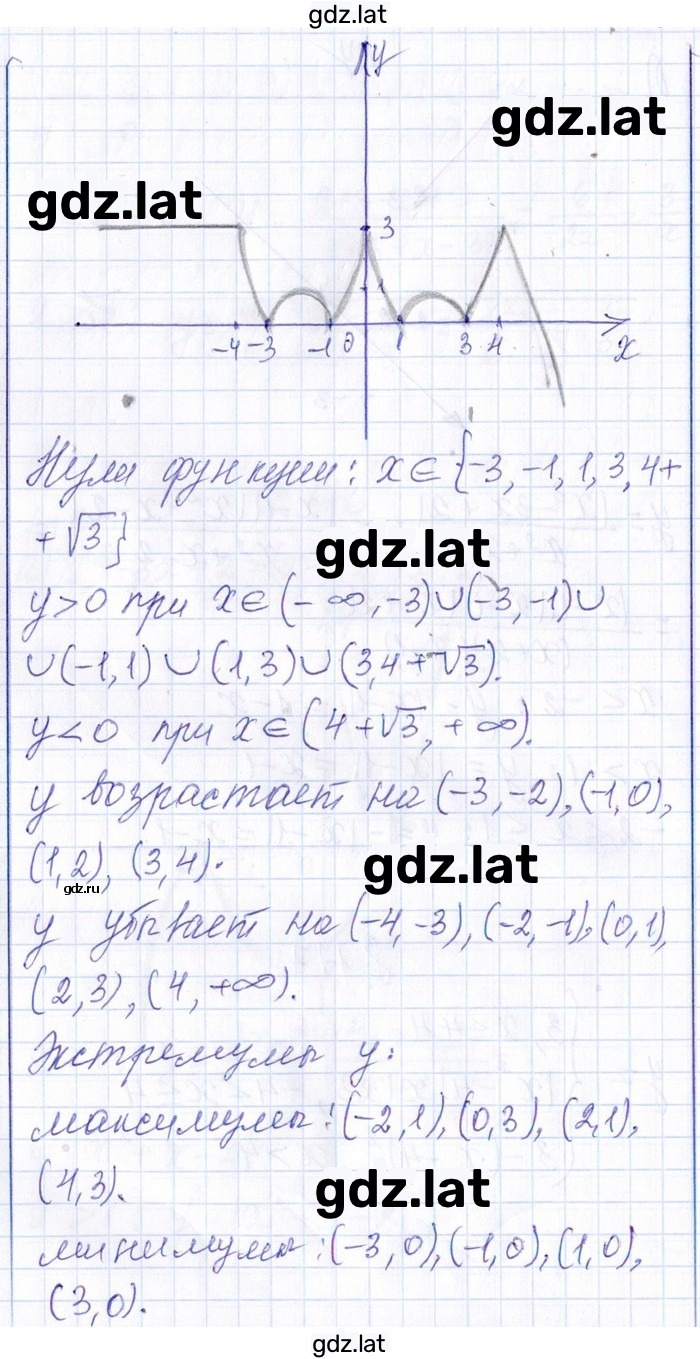 gdz.lat
y
gdz.lat
gdz.lat
3
1
-4 -3 -1 0 1 3 4 x
Нули функции: x∈{-3,-1,1,3,4+
+√3}
gdz.lat
y>0 при x∈(-∞,-3)∪(-3,-1)∪
∪(-1,1)∪(1,3)∪(3,4+√3).
y<0 при x∈(4+√3,+∞).
y возрастает на (-3,-2),(-1,0),
(1,2),(3,4).
gdz.ru
gdz.lat
y убывает на (-4,-3),(-2,-1),(0,1),
(2,3),(4,+∞).
Экстремумы y:
максимумы:(-2,1),(0,3),(2,1),
(4,3).
gdz.lat
минимумы:(-3,0),(-1,0),(1,0),
(3,0).
gdz.lat